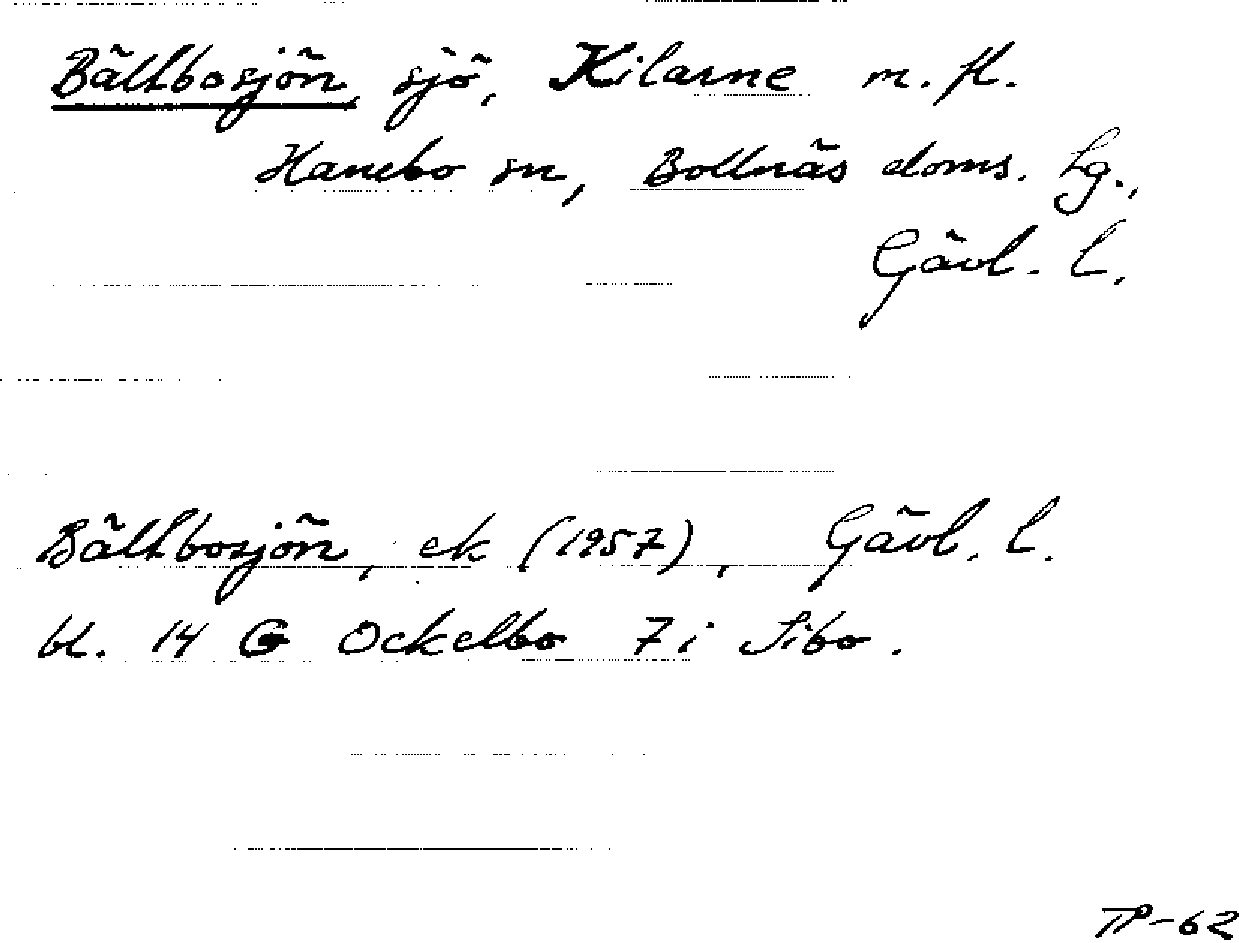 Bältbosjön, sjö, Kilarne m. fl.
Hanebo sn, Bollnäs doms. Lg.,
Gävl. l.
Bältbosjön, ek (1957), Gävl. l.
bl. 14 G Ockelbo 7 i Sibo.
TP-62